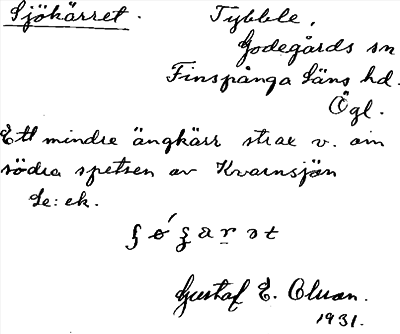 Sjökärret. Tybble,
Godegårds sn
Finspånga Läns hd.
Ögl.
Ett mindre ängkärr strax v. om
södra spetsen av Kvarnsjön
Le: ek.
Gustaf E. Olsson.
1931.